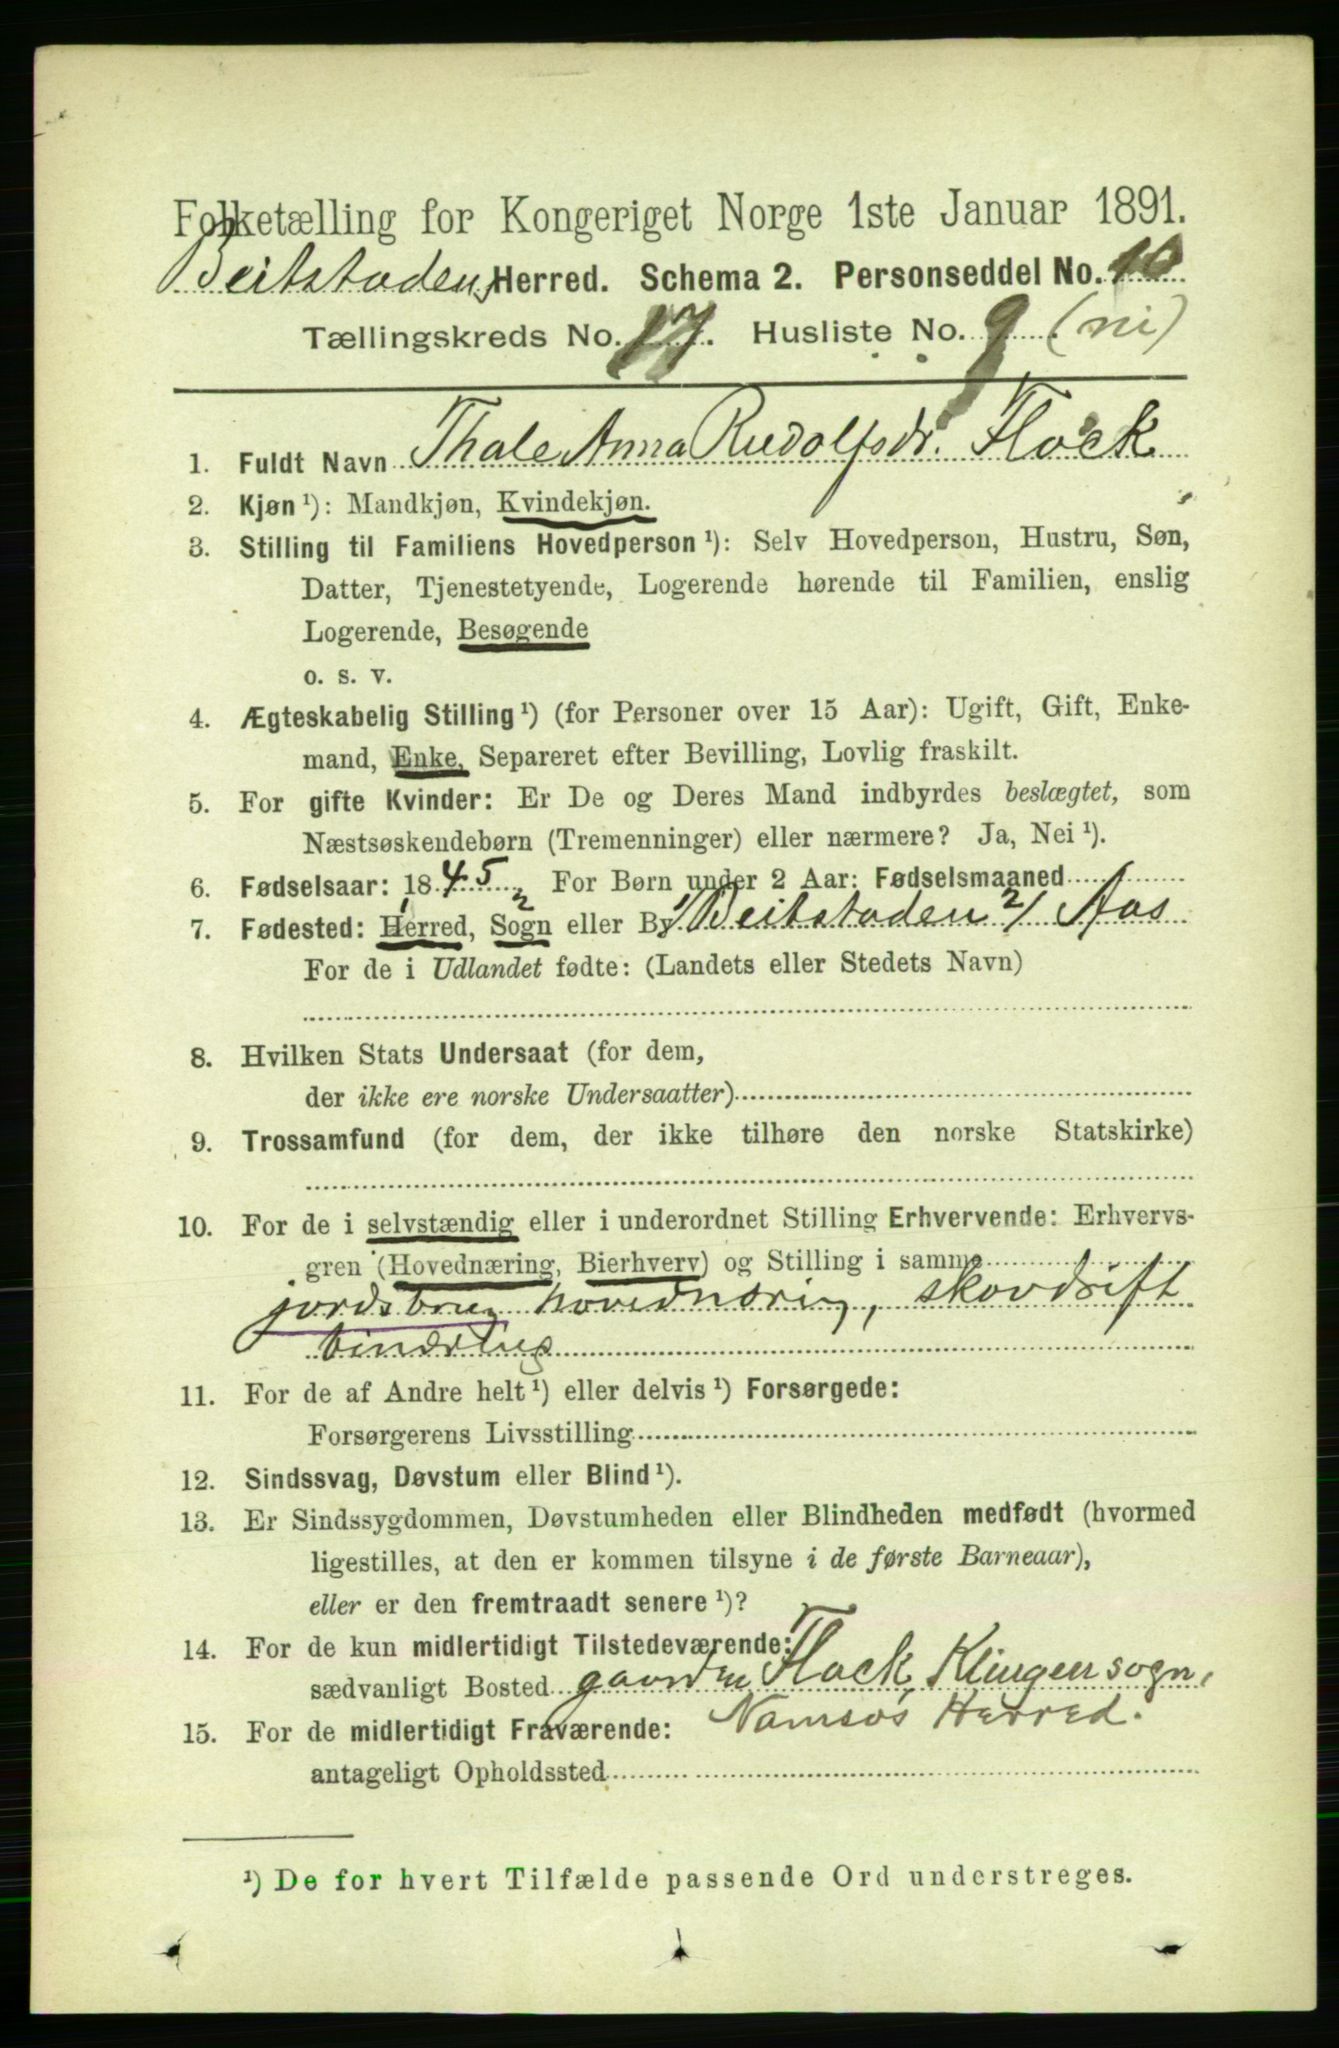 Folketælling for Kongeriget Norge 1ste Januar 1891.
Beitstadens Herred. Schema 2. Personseddel No. 10
Tællingskreds No. 17. Husliste No. 9 (ni)
1. Fuldt Navn Thale Anna Rudolfsdr. Flack
2. Kjøn ¹): Mandkjøn, Kvindekjøn.
3. Stilling til Familiens Hovedperson ¹): Selv Hovedperson, Hustru, Søn,
Datter, Tjenestetyende, Logerende hørende til Familien, enslig
Logerende, Besøgende
o. s. v.
4. Ægteskabelig Stilling ¹) (for Personer over 15 Aar): Ugift, Gift, Enke-
mand, Enke, Separeret efter Bevilling, Lovlig fraskilt.
5. For gifte Kvinder: Er De og Deres Mand indbyrdes beslægtet, som
Næstsøskendebørn (Tremenninger) eller nærmere? Ja, Nei ¹).
6. Fødselsaar: 1845 For Børn under 2 Aar: Fødselsmaaned
7. Fødested: Herred, Sogn eller By 1/ Beitstaden 2/ Aas
For de i Udlandet fødte: (Landets eller Stedets Navn)
8. Hvilken Stats Undersaat (for dem,
der ikke ere norske Undersaatter)
9. Trossamfund (for dem, der ikke tilhøre den norske Statskirke)
10. For de i selvstændig eller i underordnet Stilling Erhvervende: Erhvervs-
gren (Hovednæring, Bierhverv) og Stilling i samme
jordsbrug hovednæring, skovdrift
binæring
11. For de af Andre helt ¹) eller delvis ¹) Forsørgede:
Forsørgerens Livsstilling
12. Sindssvag, Døvstum eller Blind ¹).
13. Er Sindssygdommen, Døvstumheden eller Blindheden medfødt (hvormed
ligestilles, at den er kommen tilsyne i de første Barneaar),
eller er den fremtraadt senere ¹)?
14. For de kun midlertidigt Tilstedeværende:
sædvanligt Bosted gaarden Flack, Klingen sogn,
15. For de midlertidigt Fraværende: Namsos Herred.
antageligt Opholdssted
¹) De for hvert Tilfælde passende Ord understreges.